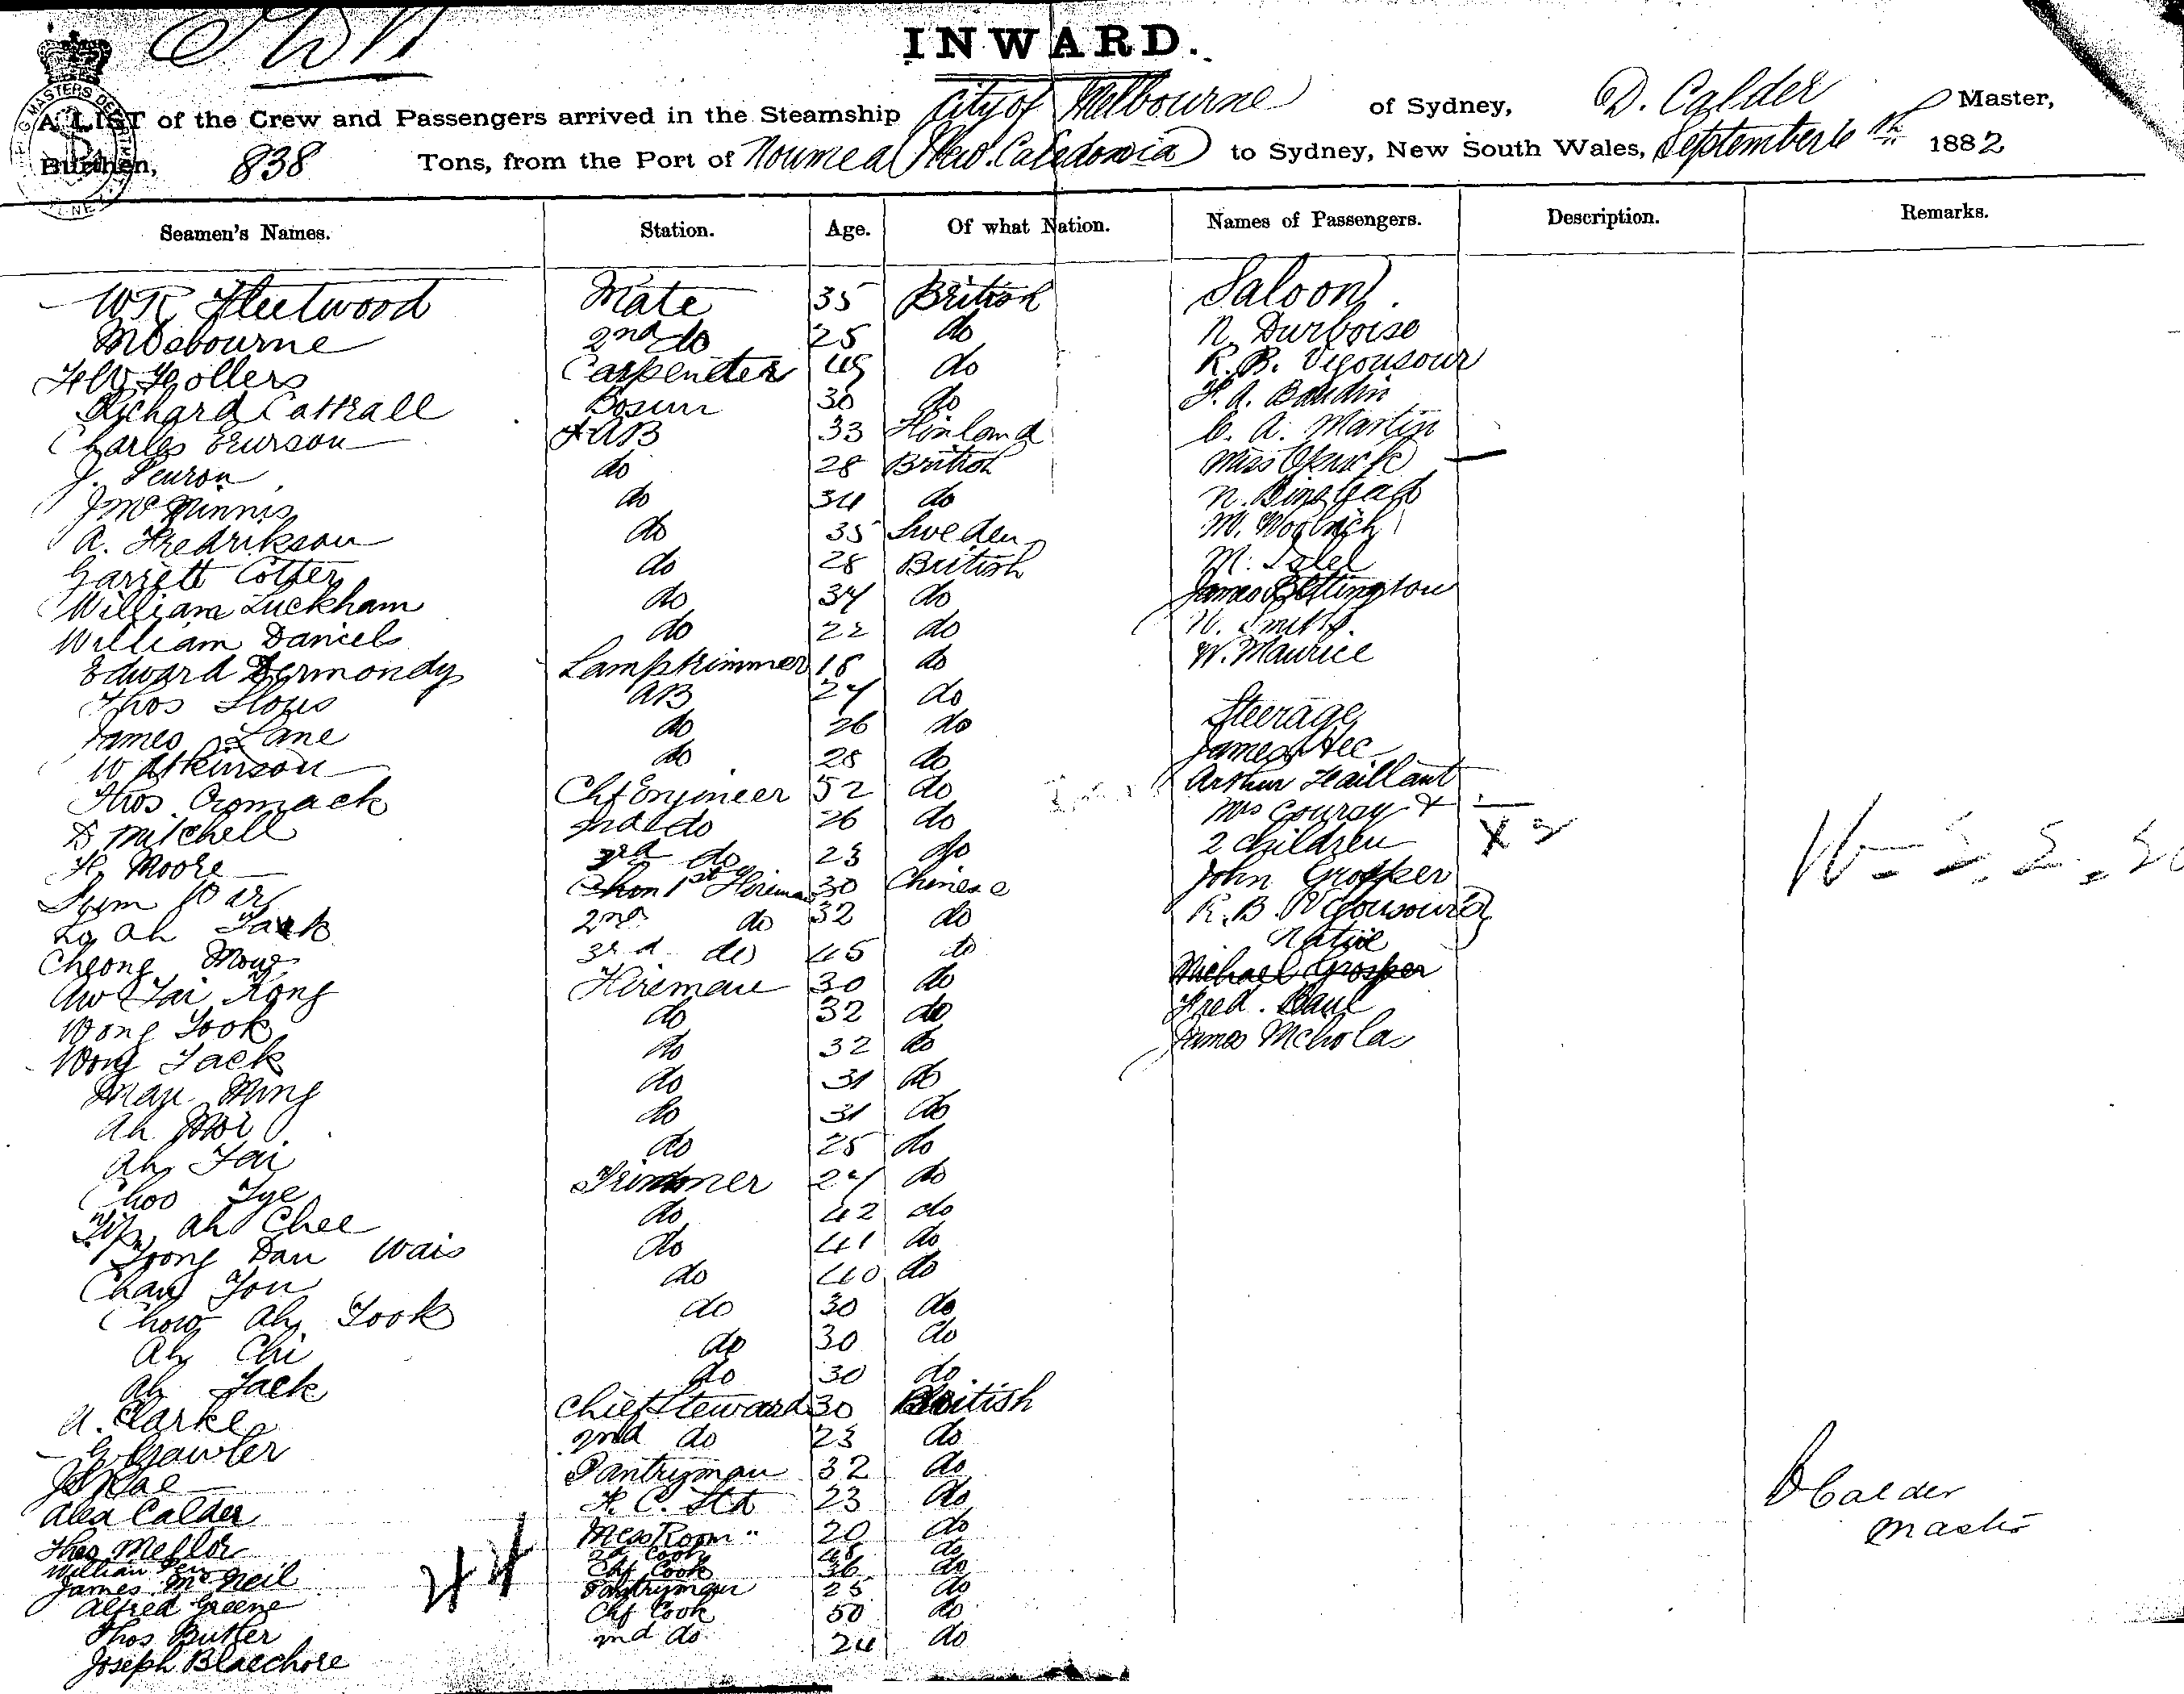 INWARD.
A LIST of the Crew and Passengers arrived in the Steamship City of Melbourne of Sydney, D. Calder Master,
Burthen, 838 Tons, from the Port of Noumea New Caledonia to Sydney, New South Wales, September 6th 1882
Seamen's Names. Station. Age. Of what Nation. Names of Passengers. Description. Remarks.
WR Fleetwood Mate 35 British Saloon.
M Osbourne 2nd do 25 do N. Durboise
Hollers Carpenter do R. B. Vigousour
Richard Cattrall Bosun 30 do F. A. Baudin
Charles AB 33 Finland C. A. Martin
J. do 28 British Miss
J McGinnis do 34 do N. Binstead
A. Fredrikson do 35 Sweden M. Woolrich
Garrett Cotter do 28 British M.
William Luckham do 34 do James Bettington
William Daniels do 22 do Smith
Edward Dermondy Lamptrimmer 18 do W. Maurice
Thos AB 27 do
James Lane do 26 do Steerage
W Atkinson do 28 do James
Thos Cromack Chf Engineer 52 do Arthur Haillant
D Mitchell 2nd do 26 do Mrs Couray &
H. Moore 3rd do 23 do 2 Children X 2
Sum War 1st Fireman 30 Chinese John Grosper
Lo Ah Jack 2nd do 32 do R. B. Vigousour
Cheong Mong 3rd do 45 do Native
Aw Tai Kong Fireman 30 do Michael Grosper
Wong Took do 32 do Fred. Paul
Wong Jack do 32 do James Nicholas
Man Ming do 31 do
Ah Moi do 31 do
Ah Tai do 25 do
Choo Tye Trimmer 27 do
Yip Ah Chee do 42 do
Toong Dan Wais do 41 do
Chan You do 40 do
Chow Ah Took do 30 do
Ah Chi do 30 do
Ah Jack do 30 do
A. Clarke Chief Steward 30 British
G Gawler 2nd do 23 do
Rae Pantryman 32 do
Alex Calder F. C. Std 23 do
D Calder
Master
Thos Mellor Mess Room " 20 do
William 2d Cook 48 do
James McNeil Chf Cook 36 do
44
Alfred Greene Pantryman 25 do
Thos Butler Chf Cook 50 do
Joseph Blaechore 2nd do 24 do